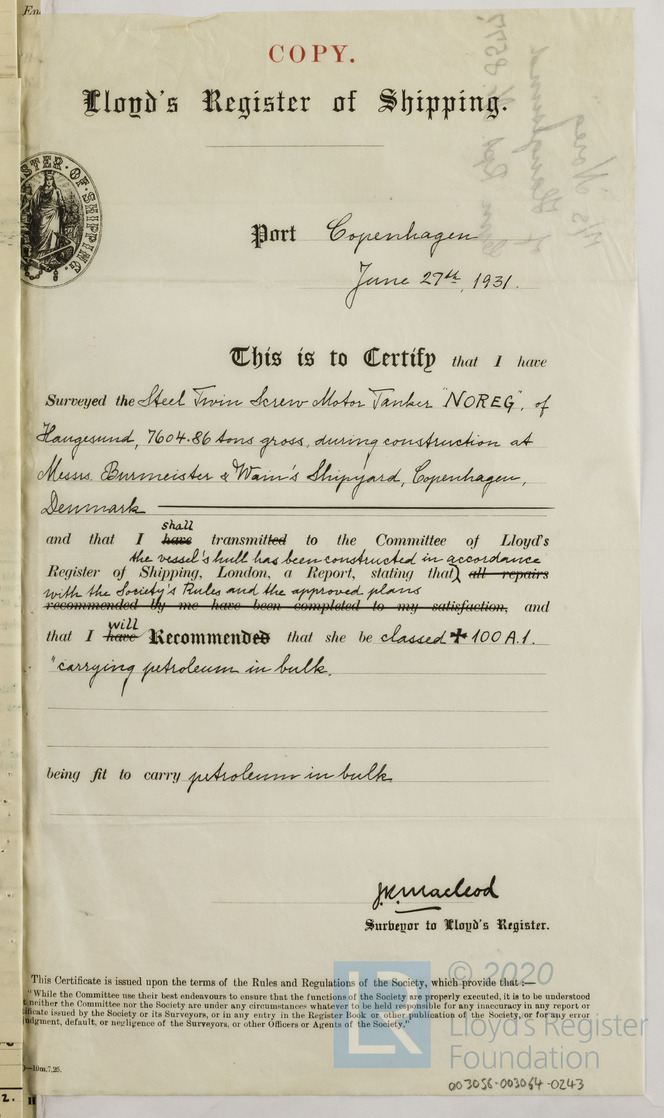 En
COPY.
Lloyd's Register of Shipping.
STER·OF·SHIPPING.
Port Copenhagen
June 27th, 1931.
This is to Certify that I have
Surveyed the Steel Twin Screw Motor Tanker "NOREG", of
Haugesund, 7604.86 tons gross, during construction at
Messrs. Burmeister & Wain's Shipyard, Copenhagen,
Denmark
shall
and that I have transmitted to the Committee of Lloyd's
the vessel's hull has been constructed in accordance
Register of Shipping, London, a Report, stating that all repairs
with the Society's Rules and the approved plans
recommended by me have been completed to my satisfaction, and
will
that I have Recommended that she be classed ✠ 100 A.1.
"carrying petroleum in bulk.
being fit to carry petroleum in bulk
J.K. Macleod
Surveyor to Lloyd's Register.
This Certificate is issued upon the terms of the Rules and Regulations of the Society, which provide that :—
"While the Committee use their best endeavours to ensure that the functions of the Society are properly executed, it is to be understood
t neither the Committee nor the Society are under any circumstances whatever to be held responsible for any inaccuracy in any report or
ificate issued by the Society or its Surveyors, or in any entry in the Register Book or other publication of the Society, or for any error
udgment, default, or negligence of the Surveyors, or other Officers or Agents of the Society."
—10m.7,25.
© 2020
LR
Lloyd's Register
Foundation
003056-003064-0243
2.